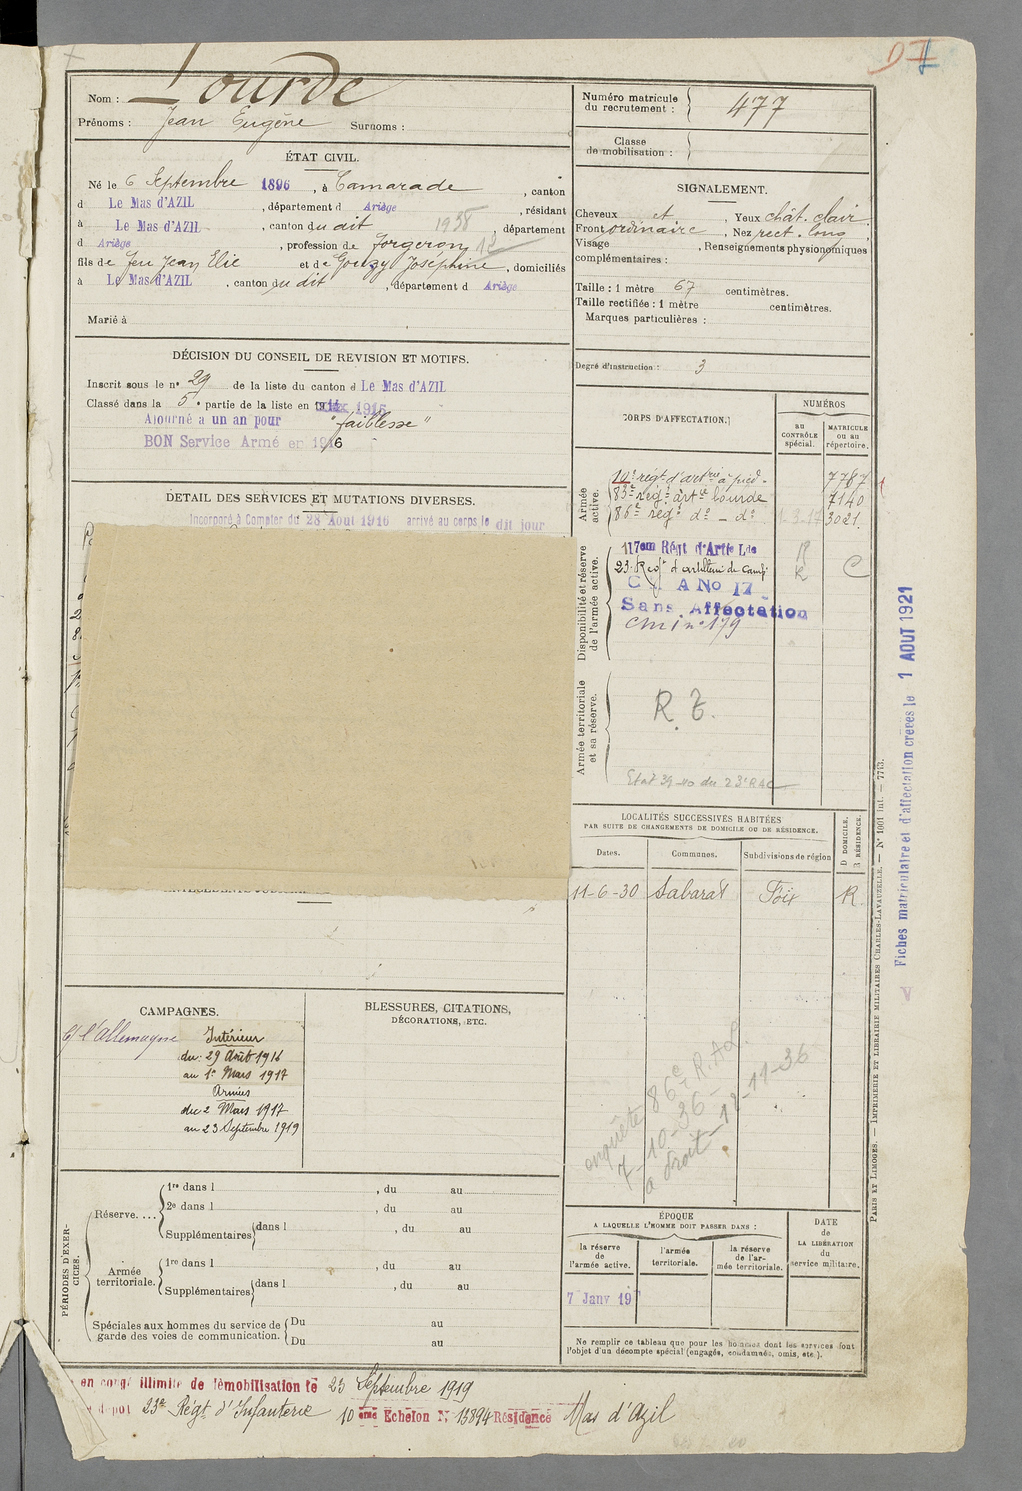 Nom : Lourde
Prénoms : Jean Eugène Surnoms :
ÉTAT CIVIL.
Né le 6 Septembre 1896, à Camarade, canton
d Le Mas d'AZIL, département d Ariège, résidant
à Le Mas d'AZIL, canton du dit 1938, département
d Ariège, profession de forgeron 12
fils de feu Jean Elie et de Gouzy Joséphine, domiciliés
à Le Mas d'AZIL, canton du dit, département d Ariège
Marié à
DÉCISION DU CONSEIL DE REVISION ET MOTIFS.
Inscrit sous le n° 29 de la liste du canton d Le Mas d'AZIL
Classé dans la 5e partie de la liste en 1915
Ajourné à un an pour "faiblesse"
BON Service Armé en 1916
DÉTAIL DES SERVICES ET MUTATIONS DIVERSES.
Incorporé à Compter du 28 Aout 1916 arrivé au corps le dit jour
CAMPAGNES.
c/ l'Allemagne
Intérieur
du 29 Août 1916
au 1er Mars 1917
Armées
du 2 Mars 1917
au 23 Septembre 1919
BLESSURES, CITATIONS,
DÉCORATIONS, ETC.
PÉRIODES D'EXERCICES.
Réserve....
1re dans l , du au
2e dans l , du au
Supplémentaires dans l , du au
Armée territoriale.
1re dans l , du au
Supplémentaires dans l , du au
Spéciales aux hommes du service de garde des voies de communication.
Du au
Du au
en congé illimité de démobilisation le 23 Septembre 1919
dépôt 23e Régt d'Infanterie 10 eme Echelon N° 15894 Résidence Mas d'Azil
Numéro matricule du recrutement : 477
Classe de mobilisation :
SIGNALEMENT.
Cheveux et, Yeux chât. clair
Front ordinaire, Nez rect. long
Visage , Renseignements physionomiques
complémentaires :
Taille : 1 mètre 67 centimètres.
Taille rectifiée : 1 mètre centimètres.
Marques particulières :
Degré d'instruction : 3
CORPS D'AFFECTATION.
NUMÉROS
au CONTRÔLE spécial.
MATRICULE ou au répertoire.
Armée active.
10e régt d'artrie à pied. 7767
83e régt artie lourde 7140
86e régt do - do 1.3.17 3021.
Disponibilité et réserve de l'armée active.
117em Régt d'Artie Lde R
23e Regt d'artillerie de Camp. R C
C A No 17
Sans Affectation
cmi n° 179
Armée territoriale et sa réserve.
R. T.
Etat 39-40 du 23e RAC
LOCALITÉS SUCCESSIVES HABITÉES
PAR SUITE DE CHANGEMENTS DE DOMICILE OU DE RÉSIDENCE.
Dates. Communes. Subdivisions de région D DOMICILE. R RÉSIDENCE.
11-6-30 Sabarat Foix R.
enquête 86e R.A.L.
7-10-36-
a droit - 12-11-36
ÉPOQUE
A LAQUELLE L'HOMME DOIT PASSER DANS :
la réserve de l'armée active.
l'armée territoriale.
la réserve de l'armée territoriale.
DATE de LA LIBÉRATION du service militaire.
7 Janv 19
Ne remplir ce tableau que pour les hommes dont les services font
l'objet d'un décompte spécial (engagés, condamnés, omis, etc.).
PARIS ET LIMOGES. — IMPRIMERIE ET LIBRAIRIE MILITAIRES CHARLES-LAVAUZELLE. — N° 1001 int. — 7743.
Fiches matriculaire et d'affectation créées le 1 AOUT 1921